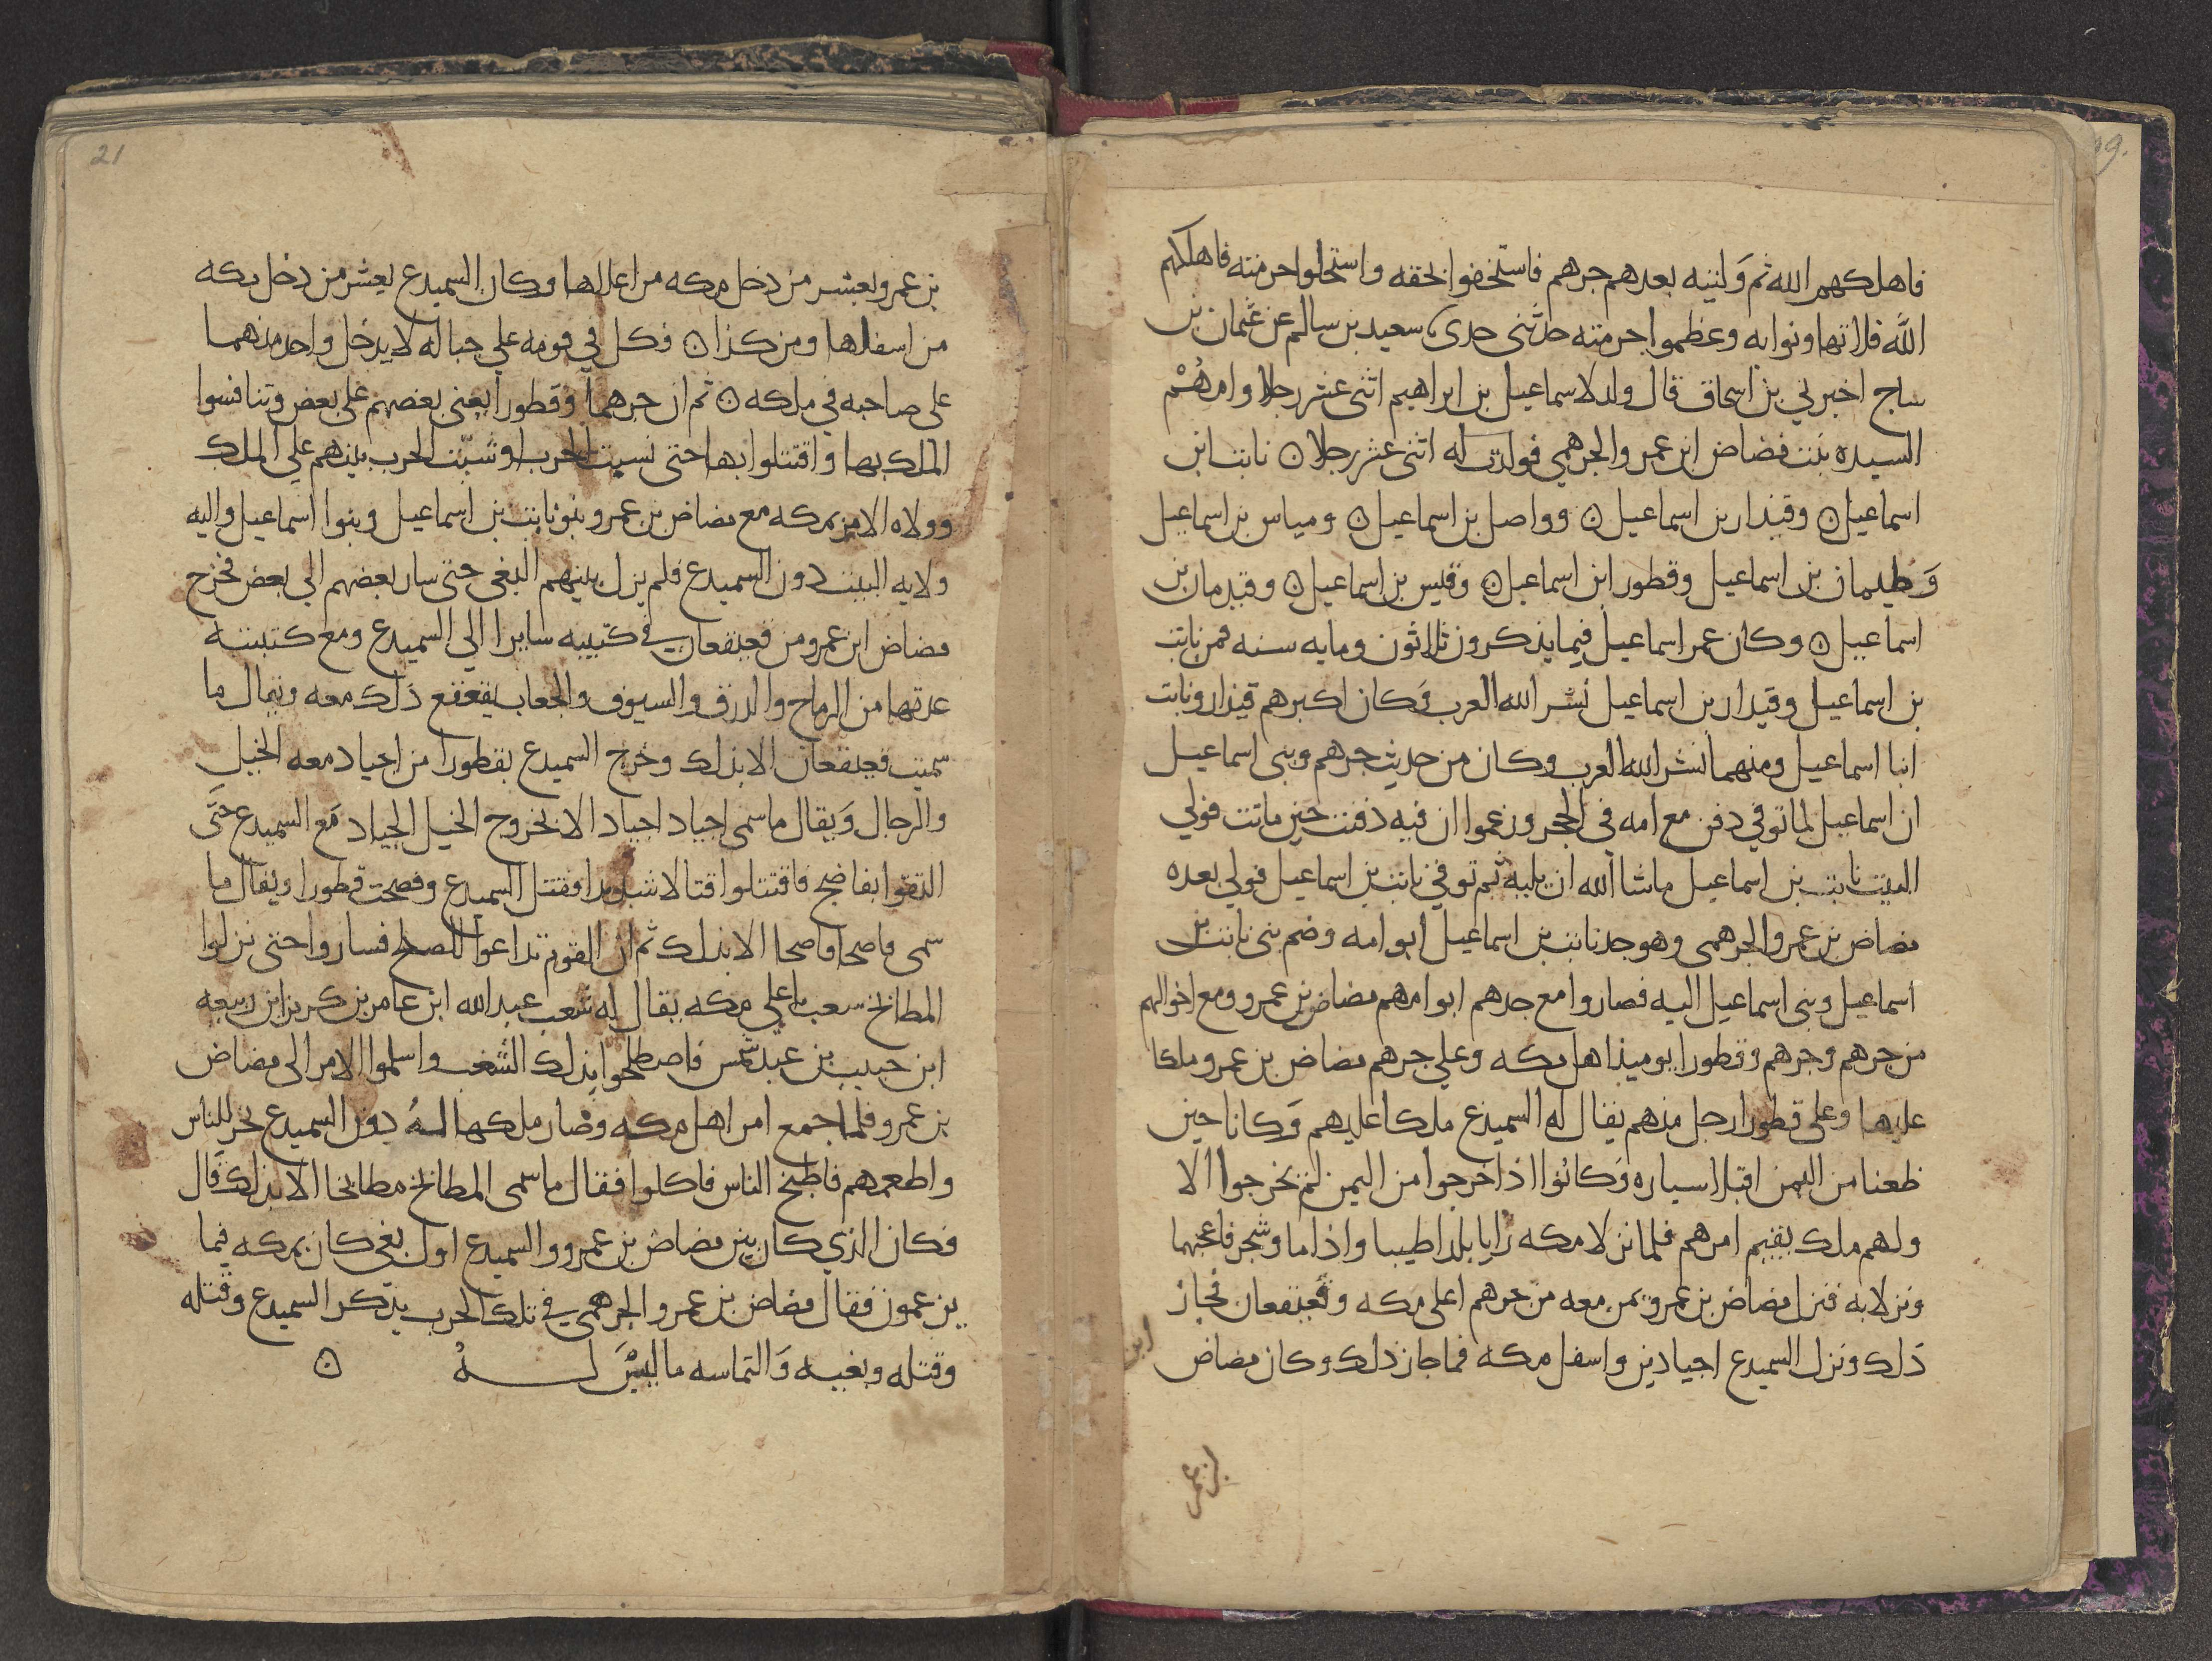 فاهلكهم الله ثم وليته بعدهم جرهم فاستخفوا بحقه واستحلوا حرمته فاهلكهم
الله فلا تهاونوا به وعظموا حرمته حدثني جدي سعيد بن سالم عن عثمان بن
ساج اخبرني بن اسحاق قال ولد لاسماعيل بن ابراهيم اثنى عشر رجلا وامهم
السيده بنت مضاض ابن عمرو الجرهمي فولدت له اثنى عشر رجلا ۞ نابت ابن
اسماعيل ۞ وقيذار بن اسماعيل ۞ وواصل بن اسماعيل ۞ ومياس بن اسماعيل
وطيمان بن اسماعيل وقطور ابن اسماعيل ۞ وقيس بن اسماعيل ۞ وقيدمان بن
اسماعيل ۞ وكان عمر اسماعيل فيما يذكرون ثلاثون ومايه سنه فمن نابت
بن اسماعيل وقيدار بن اسماعيل نشر الله العرب وكان اكبرهم قيذار ونابت
ابنا اسماعيل ومنهما نشر الله العرب وكان من حديث جرهم وبنى اسماعيل
ان اسماعيل لما توفي دفن مع امه في الحجر وزعموا ان فيه دفنت حين ماتت فولي
البيت نابت بن اسماعيل ماشا الله ان يليه ثم توفي نابت بن اسماعيل فولي بعده
مضاض بن عمرو الجرهمى وهو جد نابت بن اسماعيل ابوا امه وضم بنى نابت بن
اسماعيل وبنى اسماعيل اليه فصاروا مع جدهم ابوا امهم مضاض بن عمرو ومع اخوالهم
من جرهم وجرهم وقطورا يوميذ اهل مكه وعلي جرهم مضاض بن عمرو ملكا
عليها وعلى قطورا رجل منهم يقال له السميدع ملكا عليهم وكانا حين
ظعنا من اليمن اقبلا سياره وكانوا اذا خرجوا من اليمن لم يخرجوا الا
ولهم ملك يقيم امرهم فلما نزلا مكه رايا بلدا طيبا واذا ما وشجر فاعجبهما
ونزلا به فنزل مضاض بن عمرو بمن معه من جرهم اعلى مكه وقعيقعان فحاز
ذلك ونزل السميدع اجيادين واسفل مكه فما حاز ذلك وكان مضاض
ابن
بن عمر
21
بن عمرو يعشر من دخل مكه من اعلاها وكان السميدع يعشر من دخل مكه
من اسفلها ومن كذا ۞ وكل في قومه على حباله لا يدخل واحد منهما
على صاحبه في ملكه ۞ ثم ان جرهما وقطورا بغى بعضهم على بعض وتنافسوا
الملك بها واقتتلوا بها حتى نسبت الحرب او شبت الحرب بينهم علي الملك
وولاه الامر بمكه مع مضاض بن عمرو بنو نابت بن اسماعيل وبنوا اسماعيل واليه
ولايه البيت دون السميدع فلم يزل بينهم البغي حتى سار بعضهم الي بعض فخرج
مضاض ابن عمرو من قعيقعان في كتيبه سايرا الي السميدع ومع كتيبته
عدتها من الرماح والدرق والسيوف والجعاب يقعقع ذلك معه ويقال ما
سميت قعيقعان الا بذلك وخرج السميدع بقطورا من اجياد معه الخيل
والرجال ويقال ما سمى اجياد اجيادا الا بخروج الخيل الجياد مع السميدع حتى
التقوا بفاضح فاقتتلوا قتالا شديدا فقتل السميدع وفضحت قطورا ويقال ما
سمى فاضحا فاضحا الا بذلك ثم ان القوم تداعوا للصلح فساروا حتى نزلوا
المطابخ شعب باعلي مكه يقال له شعب عبد الله ابن عامر بن كريز ابن ربيعه
ابن حبيب بن عبد شمس فاصطلحوا بذلك الشعب واسلموا الامر الى مضاض
بن عمرو فلما جمع امر اهل مكه وصار ملكها له دون السميدع نحر للناس
واطعمهم فاطبخ الناس فاكلوا فيقال ما سمى المطابخ مطابخا الا بذلك قال
فكان الذي كان بين مضاض بن عمرو والسميدع اول بغي كان بمكه فيما
يزعمون فقال مضاض بن عمرو الجرهمي في تلك الحرب يذكر السميدع وقتله
وقتله وبغيه والتماسه ما ليس له ۞